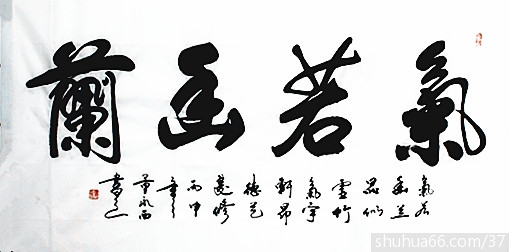 氣若幽蘭
氣若
幽兰
品似
竹
氣宇
軒昂
德艺
修
丙申
永西
書
shuhua66.com/37